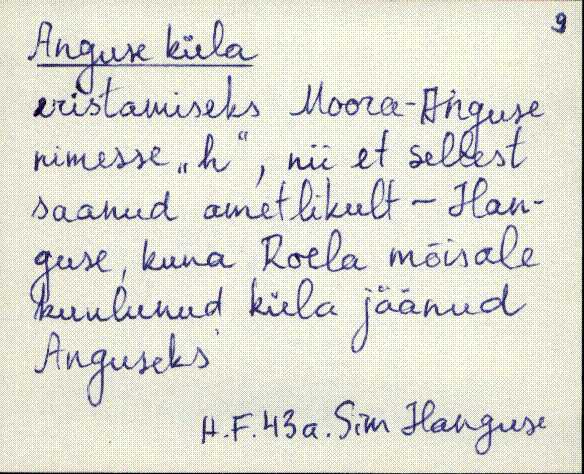 9
Anguse küla
eristamiseks Moora-Anguse
nimesse „h“, nii et sellest
saanud ametlikult - Han-
guse, kuna Roela mõisale
kuulunud küla jäänud
Anguseks
H.F. 43a. Sim Hanguse